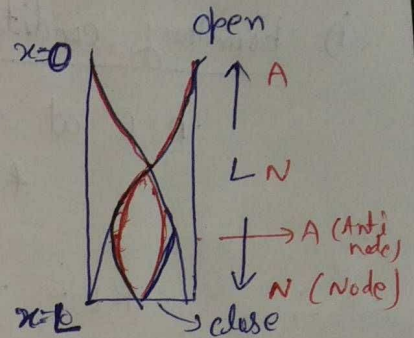 open
x=0
A
L N
A (Anti node)
N (Node)
x=L
close